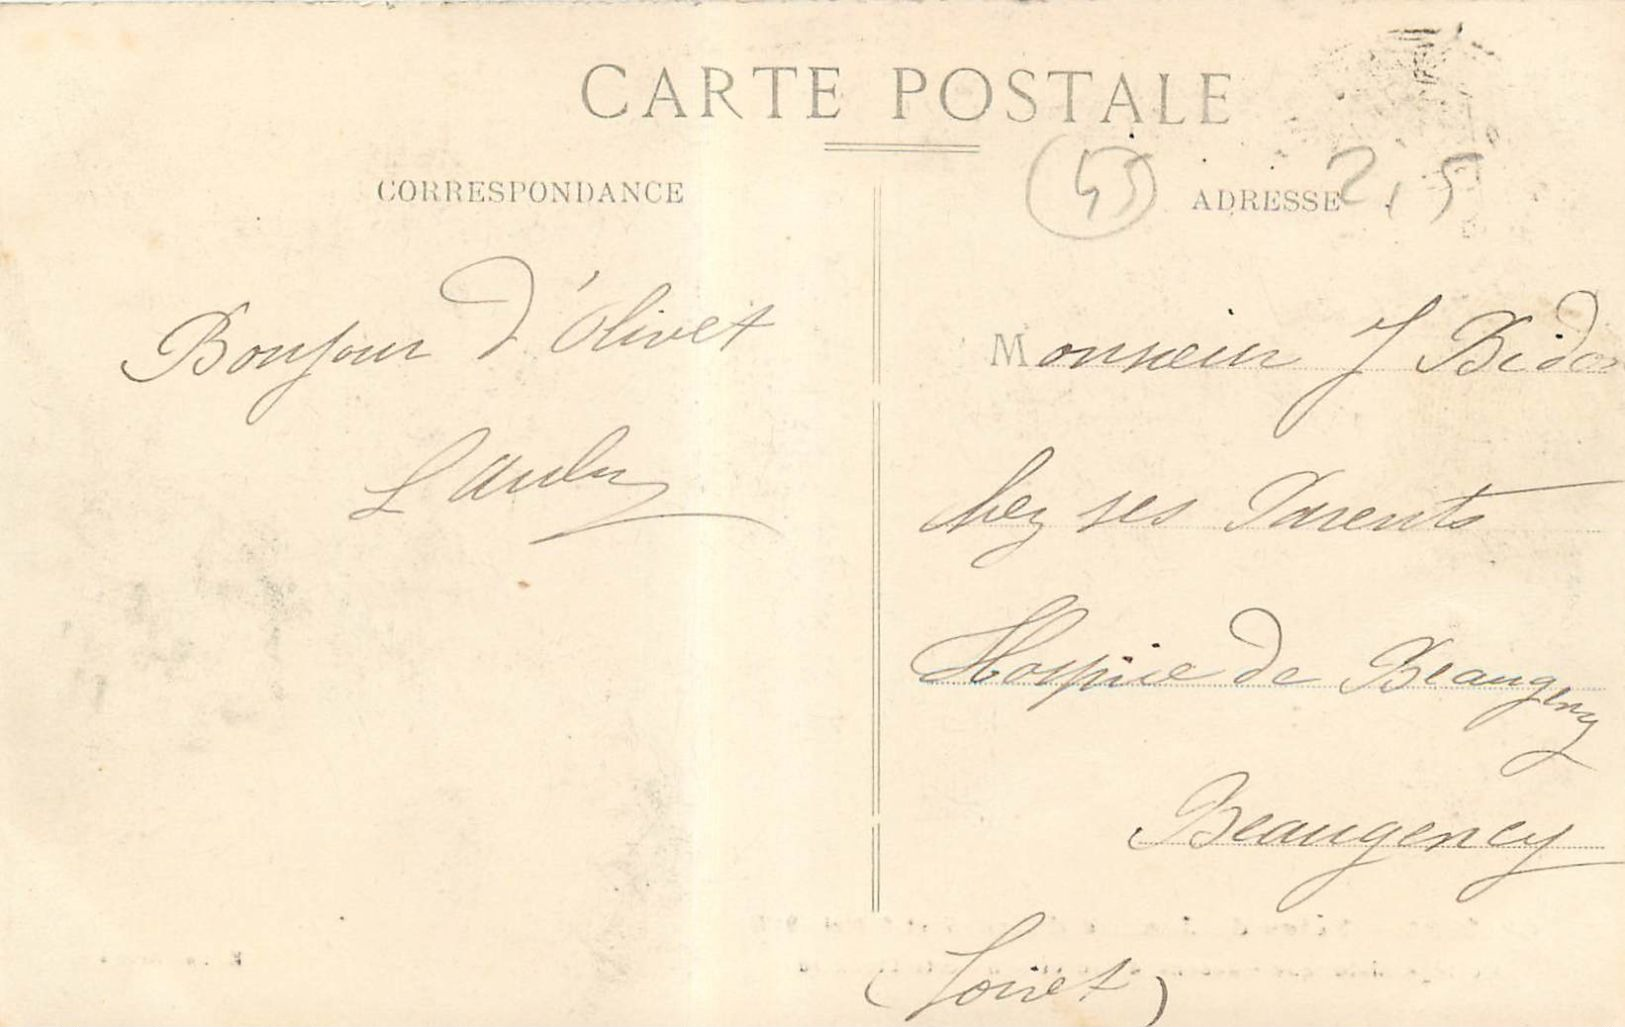 CARTE POSTALE
CORRESPONDANCE
45
ADRESSE
2,5
Bonjour d'Olivet
L Aubry
Monsieur J Bidon
chez ses Parents
Hospice de Beaugency
Beaugency
(Loiret)